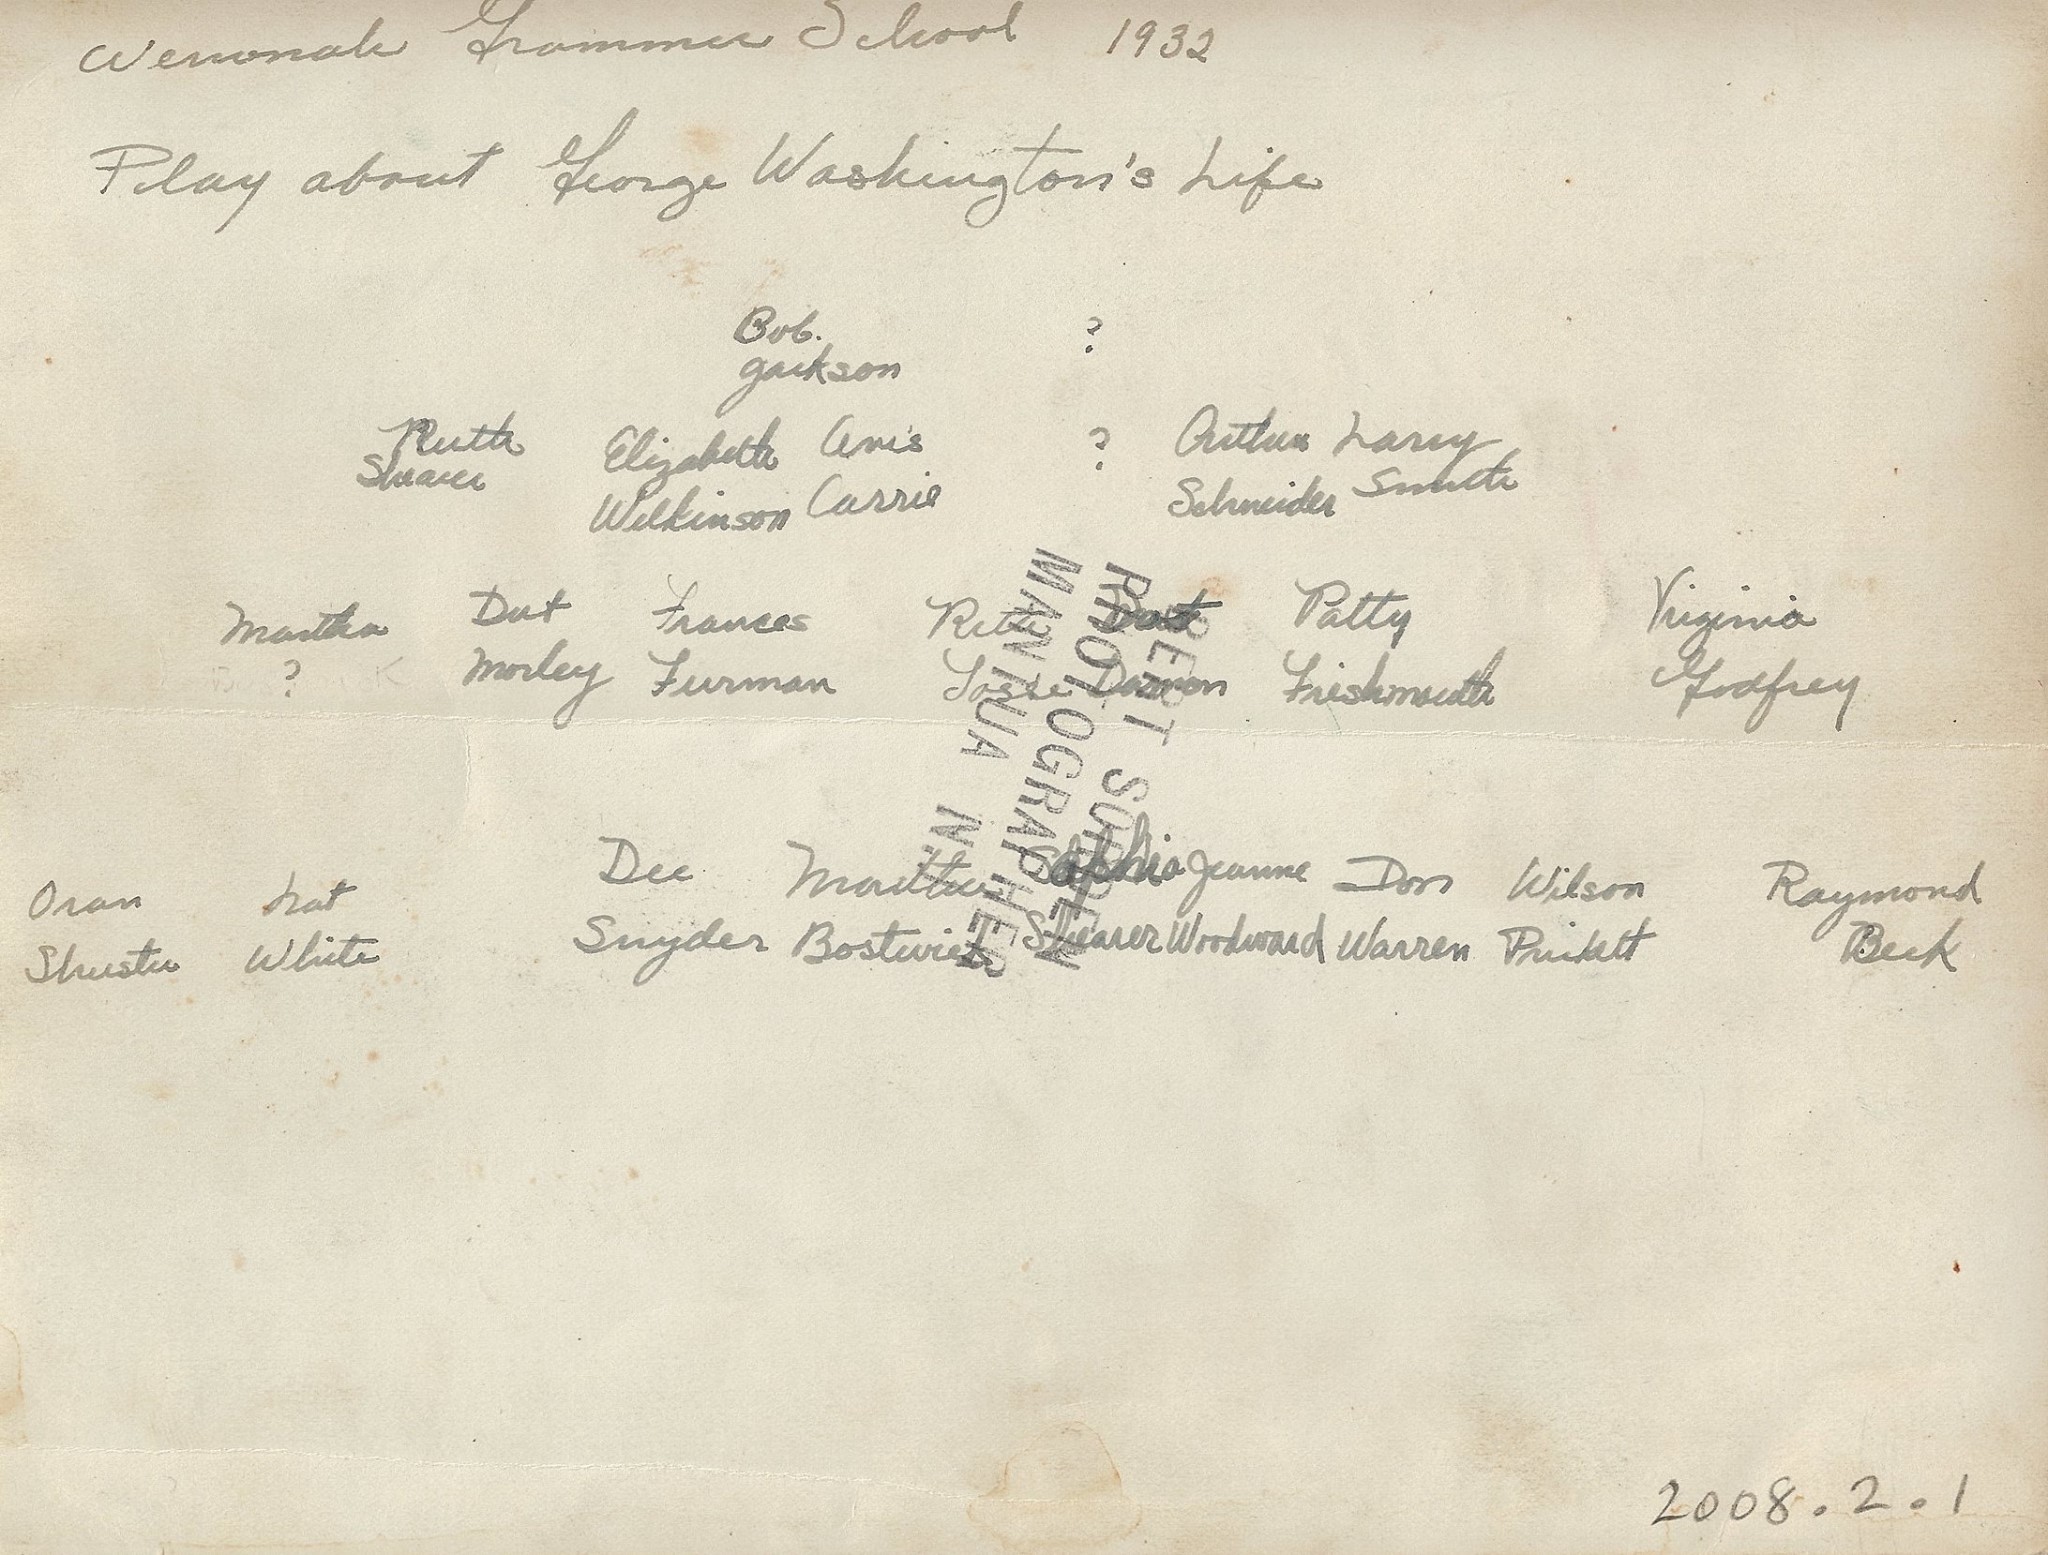 Wenonah Grammer School 1932
Play about George Washington's Life
Bob. ?
Jackson
Ruth Elizabeth Anis ? Arthur Larry
Shearer Wilkinson Carrie Schneider Smith
Martha Dot Frances Reta Dot Patty Virginia
? Morley Furman Losse Damon Frishmouth Godfrey
Oran Nat Dee Martha Sophia Jeanne Don Wilson Raymond
Shuster White Snyder Bostwick Shearer Woodward Warren Prickett Beck
PHOTOGRAPHER
MANTUA N.J.
2008.2.1